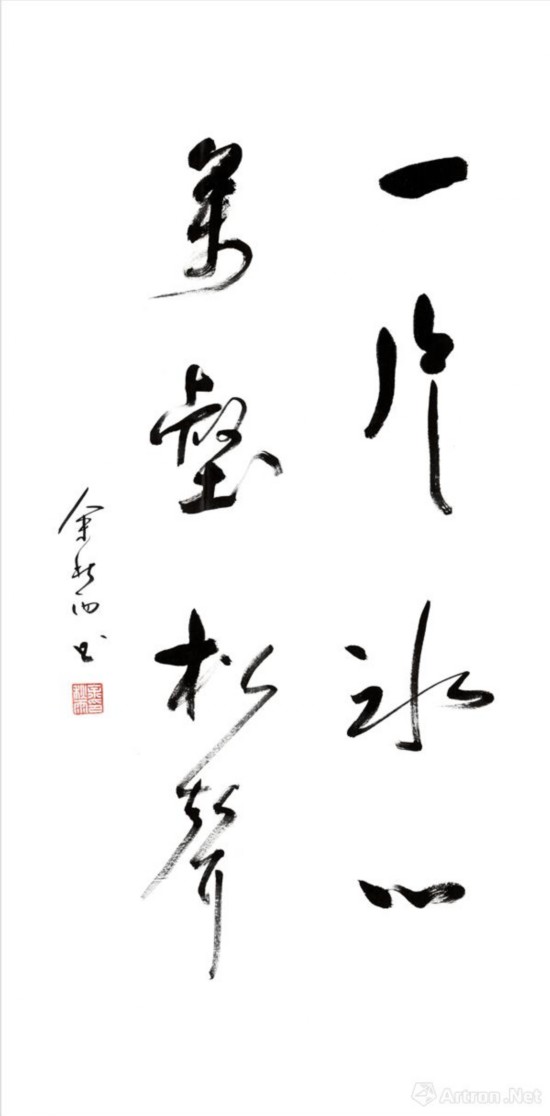 一片冰心
萬壑松聲
余秋雨书
Artron.Net